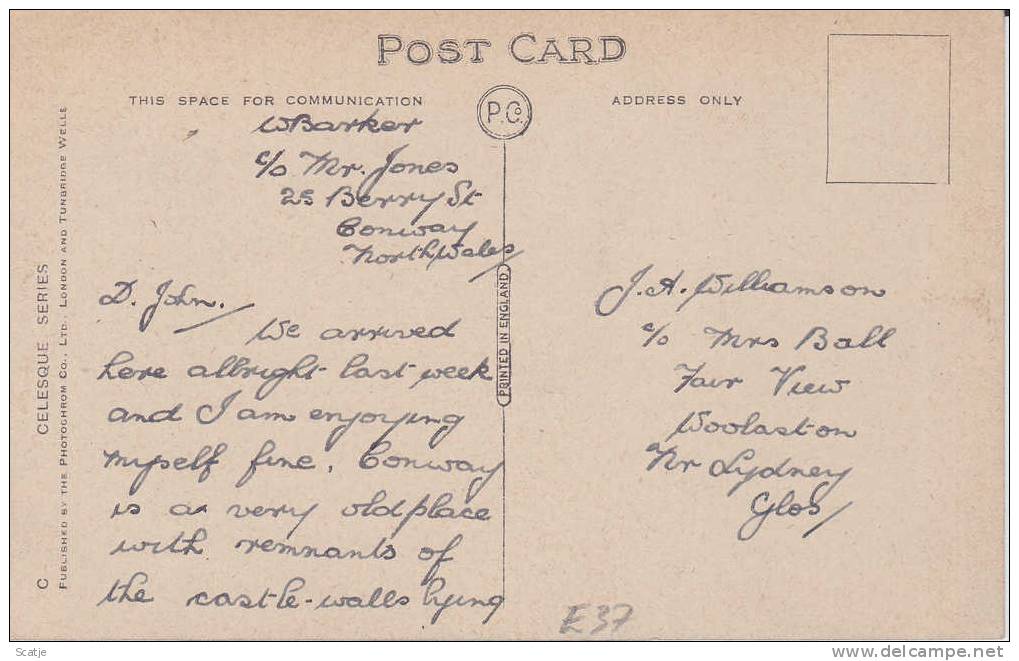 POST CARD
THIS SPACE FOR COMMUNICATION
P.Co.
ADDRESS ONLY
WBarker
c/o Mr. Jones
25 Berry St
Conway
North Wales
D. John.
We arrived
here allbright last week
and I am enjoying
myself fine. Conway
is a very old place
with remnants of
the castle-walls lying
J. A. Williamson
c/o Mrs Ball
Fair View
Woolaston
Nr Lydney
Glos
PRINTED IN ENGLAND
C CELESQUE SERIES
PUBLISHED BY THE PHOTOCHROM CO., LTD., LONDON AND TUNBRIDGE WELLS
E37
Scatje
delcampe.net